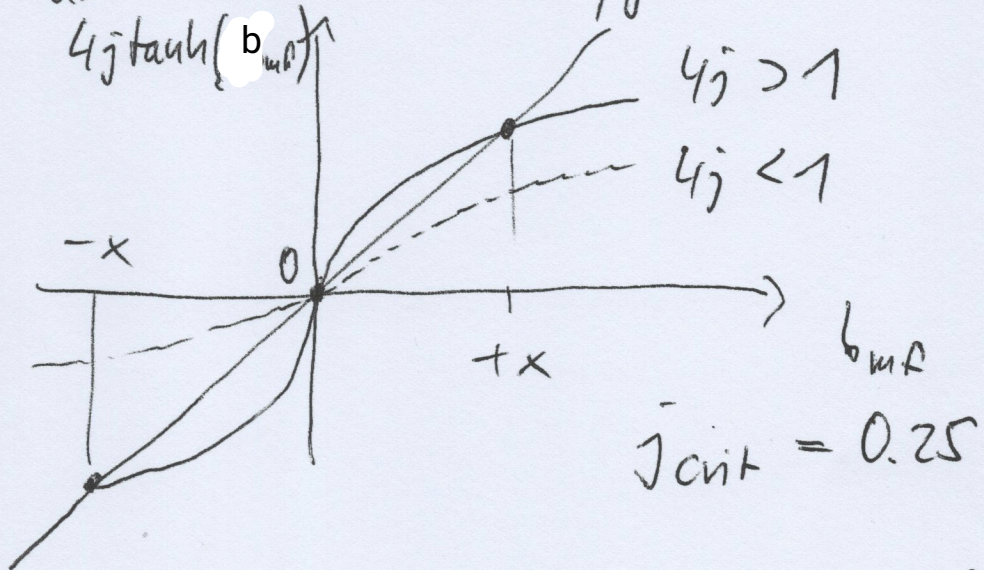 4j tanh(b_mf)
4j > 1
4j < 1
-x
0
+x
b_mf
j_crit = 0.25